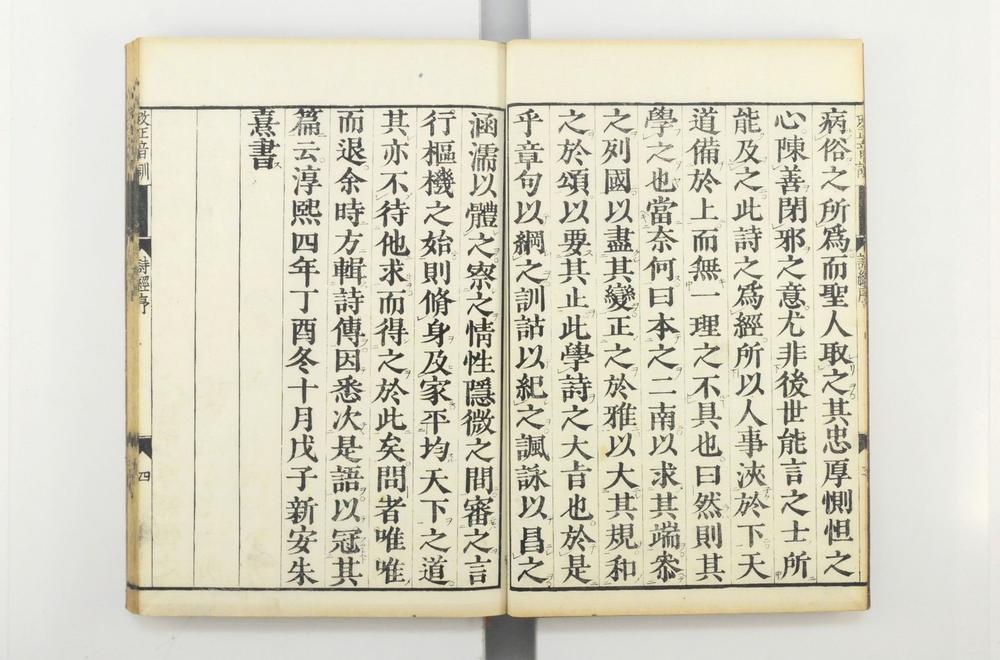 病俗之所爲而聖人取之其忠厚惻怛之
心陳善閉邪之意尤非後世能言之士所
能及之此詩之爲經所以人事浹於下天
道備於上而無一理之不具也曰然則其
學之也當奈何曰本之二南以求其端叅
之列國以盡其變正之於雅以大其規和
之於頌以要其止此學詩之大旨也於是
乎章句以綱之訓詁以紀之諷詠以昌之
涵濡以體之察之情性隱微之間審之言
行樞機之始則脩身及家平均天下之道
其亦不待他求而得之於此矣問者唯唯
而退余時方輯詩傳因悉次是語以冠其
篇云淳熙四年丁酉冬十月戊子新安朱
熹書
改正音訓
詩經序
四